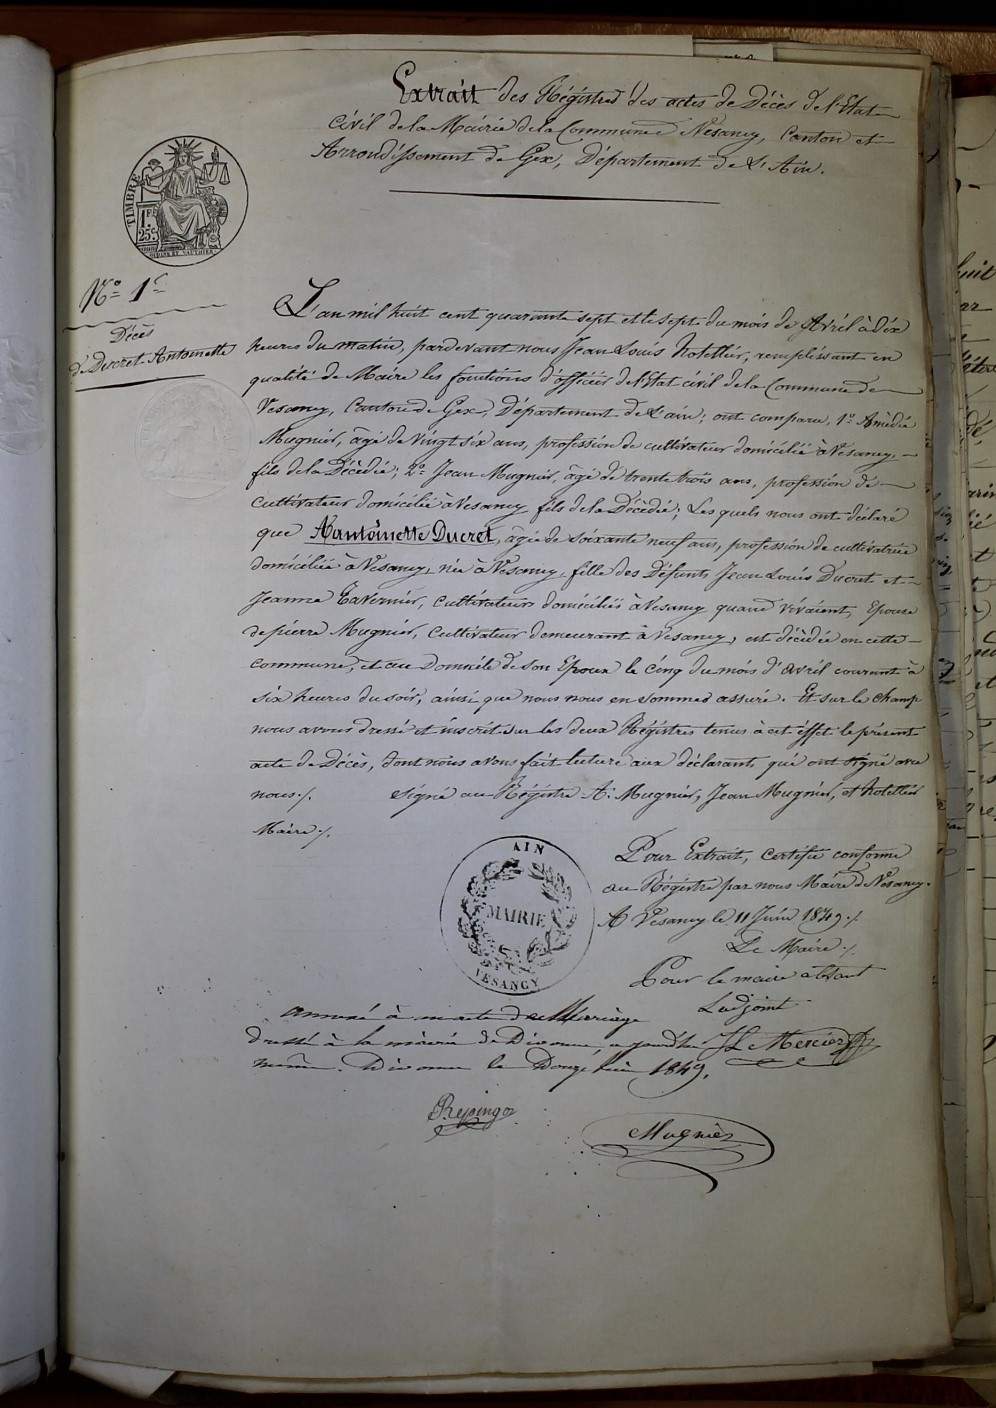 Extrait des Régistres des actes de Décès de l'Etat
civil de la Mairie de la Commune de Vesancy, Canton et
Arrondissement de Gex, Département de L'Ain.
TIMBRE
1 F.
25 c.
N° 1er
Décès
de Ducret Antoinette
L'an mil huit cent quarante sept et le sept du mois de Avril à dix
heures du matin, pardevant nous Jean Louis hotellier, remplissant en
qualité de Maire les fonctions d'officier de l'Etat civil de la Commune de
Vesancy, Canton de Gex, Département de L'ain; ont comparu, 1° Amédée
Mugnier, âgé de vingt six ans, profession de cultivateur domicilié à Vesancy,
fils de la Décédée; 2° Jean Mugnier, âgé de trente trois ans, profession de
Cultivateur domicilié à Vesancy fils de la Décédée; Les quels nous ont déclaré
que Antoinette Ducret, âgée de soixante neuf ans, profession de cultivatrice
domiciliée à Vesancy, née à Vesancy, fille des Défunts Jean Louis Ducret et
Jeanne Tavernier, Cultivateurs domiciliés à Vesancy quand vivaient, Epouse
de pierre Mugnier, Cultivateur demeurant à Vesancy, est décédée en cette
commune, et au Domicile de son Epoux le cinq du mois d'avril courant à
six heures du soir, ainsi que nous nous en sommes assuré. Et sur le champ
nous avons dressé et inscrit sur les deux Régistres tenus à cet éffet le présent
acte de Décès, dont nous avons fait lecture aux déclarants qui ont signé avec
nous ./. Signé au Régistre A. Mugnier, Jean Mugnier, et hotellier
Maire ./.
AIN
MAIRIE
VESANCY
Pour Extrait, Certifié conforme
au Régistre par nous Maire de Vesancy.
A Vesancy le 11 Juin 1849 ./.
Le Maire ./.
Pour le maire absant
Ladjoint
annexé à un acte de Merriage
dressé à la mairie de Divonne, aujourd'hui
même. Divonne le Douze Juin 1849.
Mercier
Mugnier